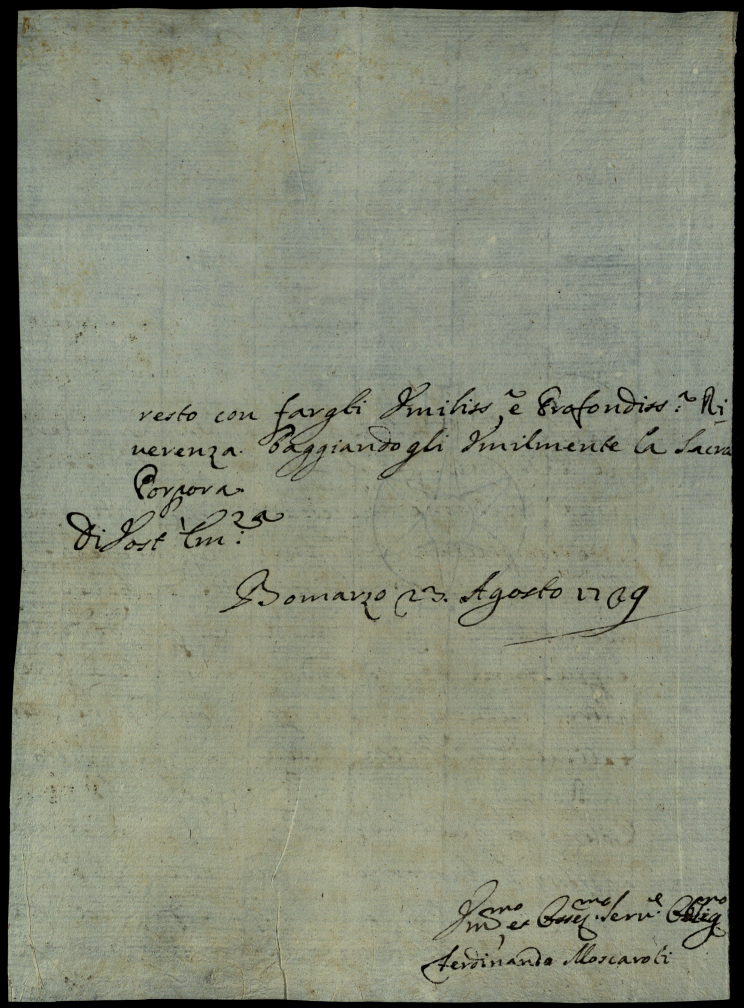 resto con fargli Umiliss.ª e Profondiss.ª Ri
verenza. Baggiandogli Umilmente la Sacra
Porpora
Di Vost Em.za
Bomarzo 23. Agosto
Um.mo et Osseq.mo Serv.e Oblig.mo
Ferdinando Moscaroli